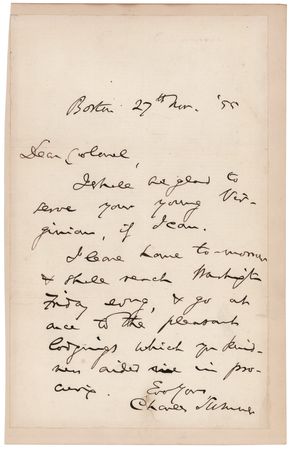 Boston 27th Nov. '55
Dear Colonel,
I shall be glad to
serve your young Vir-
ginian, if I can.
I leave home to-morrow
& shall reach Washington
Friday evng, & go at
once to the pleasant
lodgings which yr kind-
ness aided me in pro-
curing.
Ever Yours
Charles Sumner